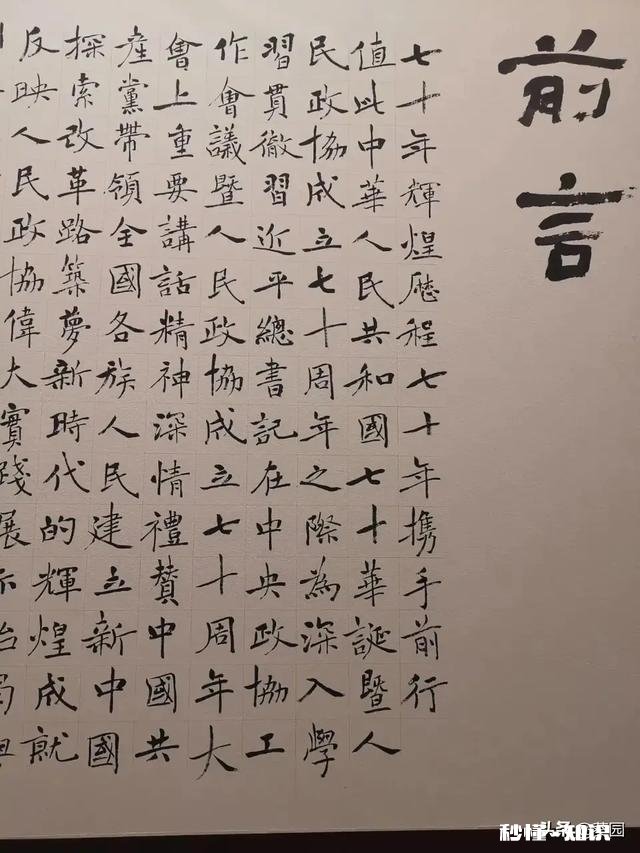 前言
七十年輝煌歷程七十年携手前行
值此中華人民共和國七十華誕暨人
民政協成立七十周年之際為深入學
習貫徹習近平總書記在中央政協工
作會議暨人民政協成立七十周年大
會上重要講話精神深情禮贊中國共
產黨帶領全國各族人民建立新中國
探索改革路築夢新時代的輝煌成就
反映人民政協偉大實踐展示
头条
秒懂-知识